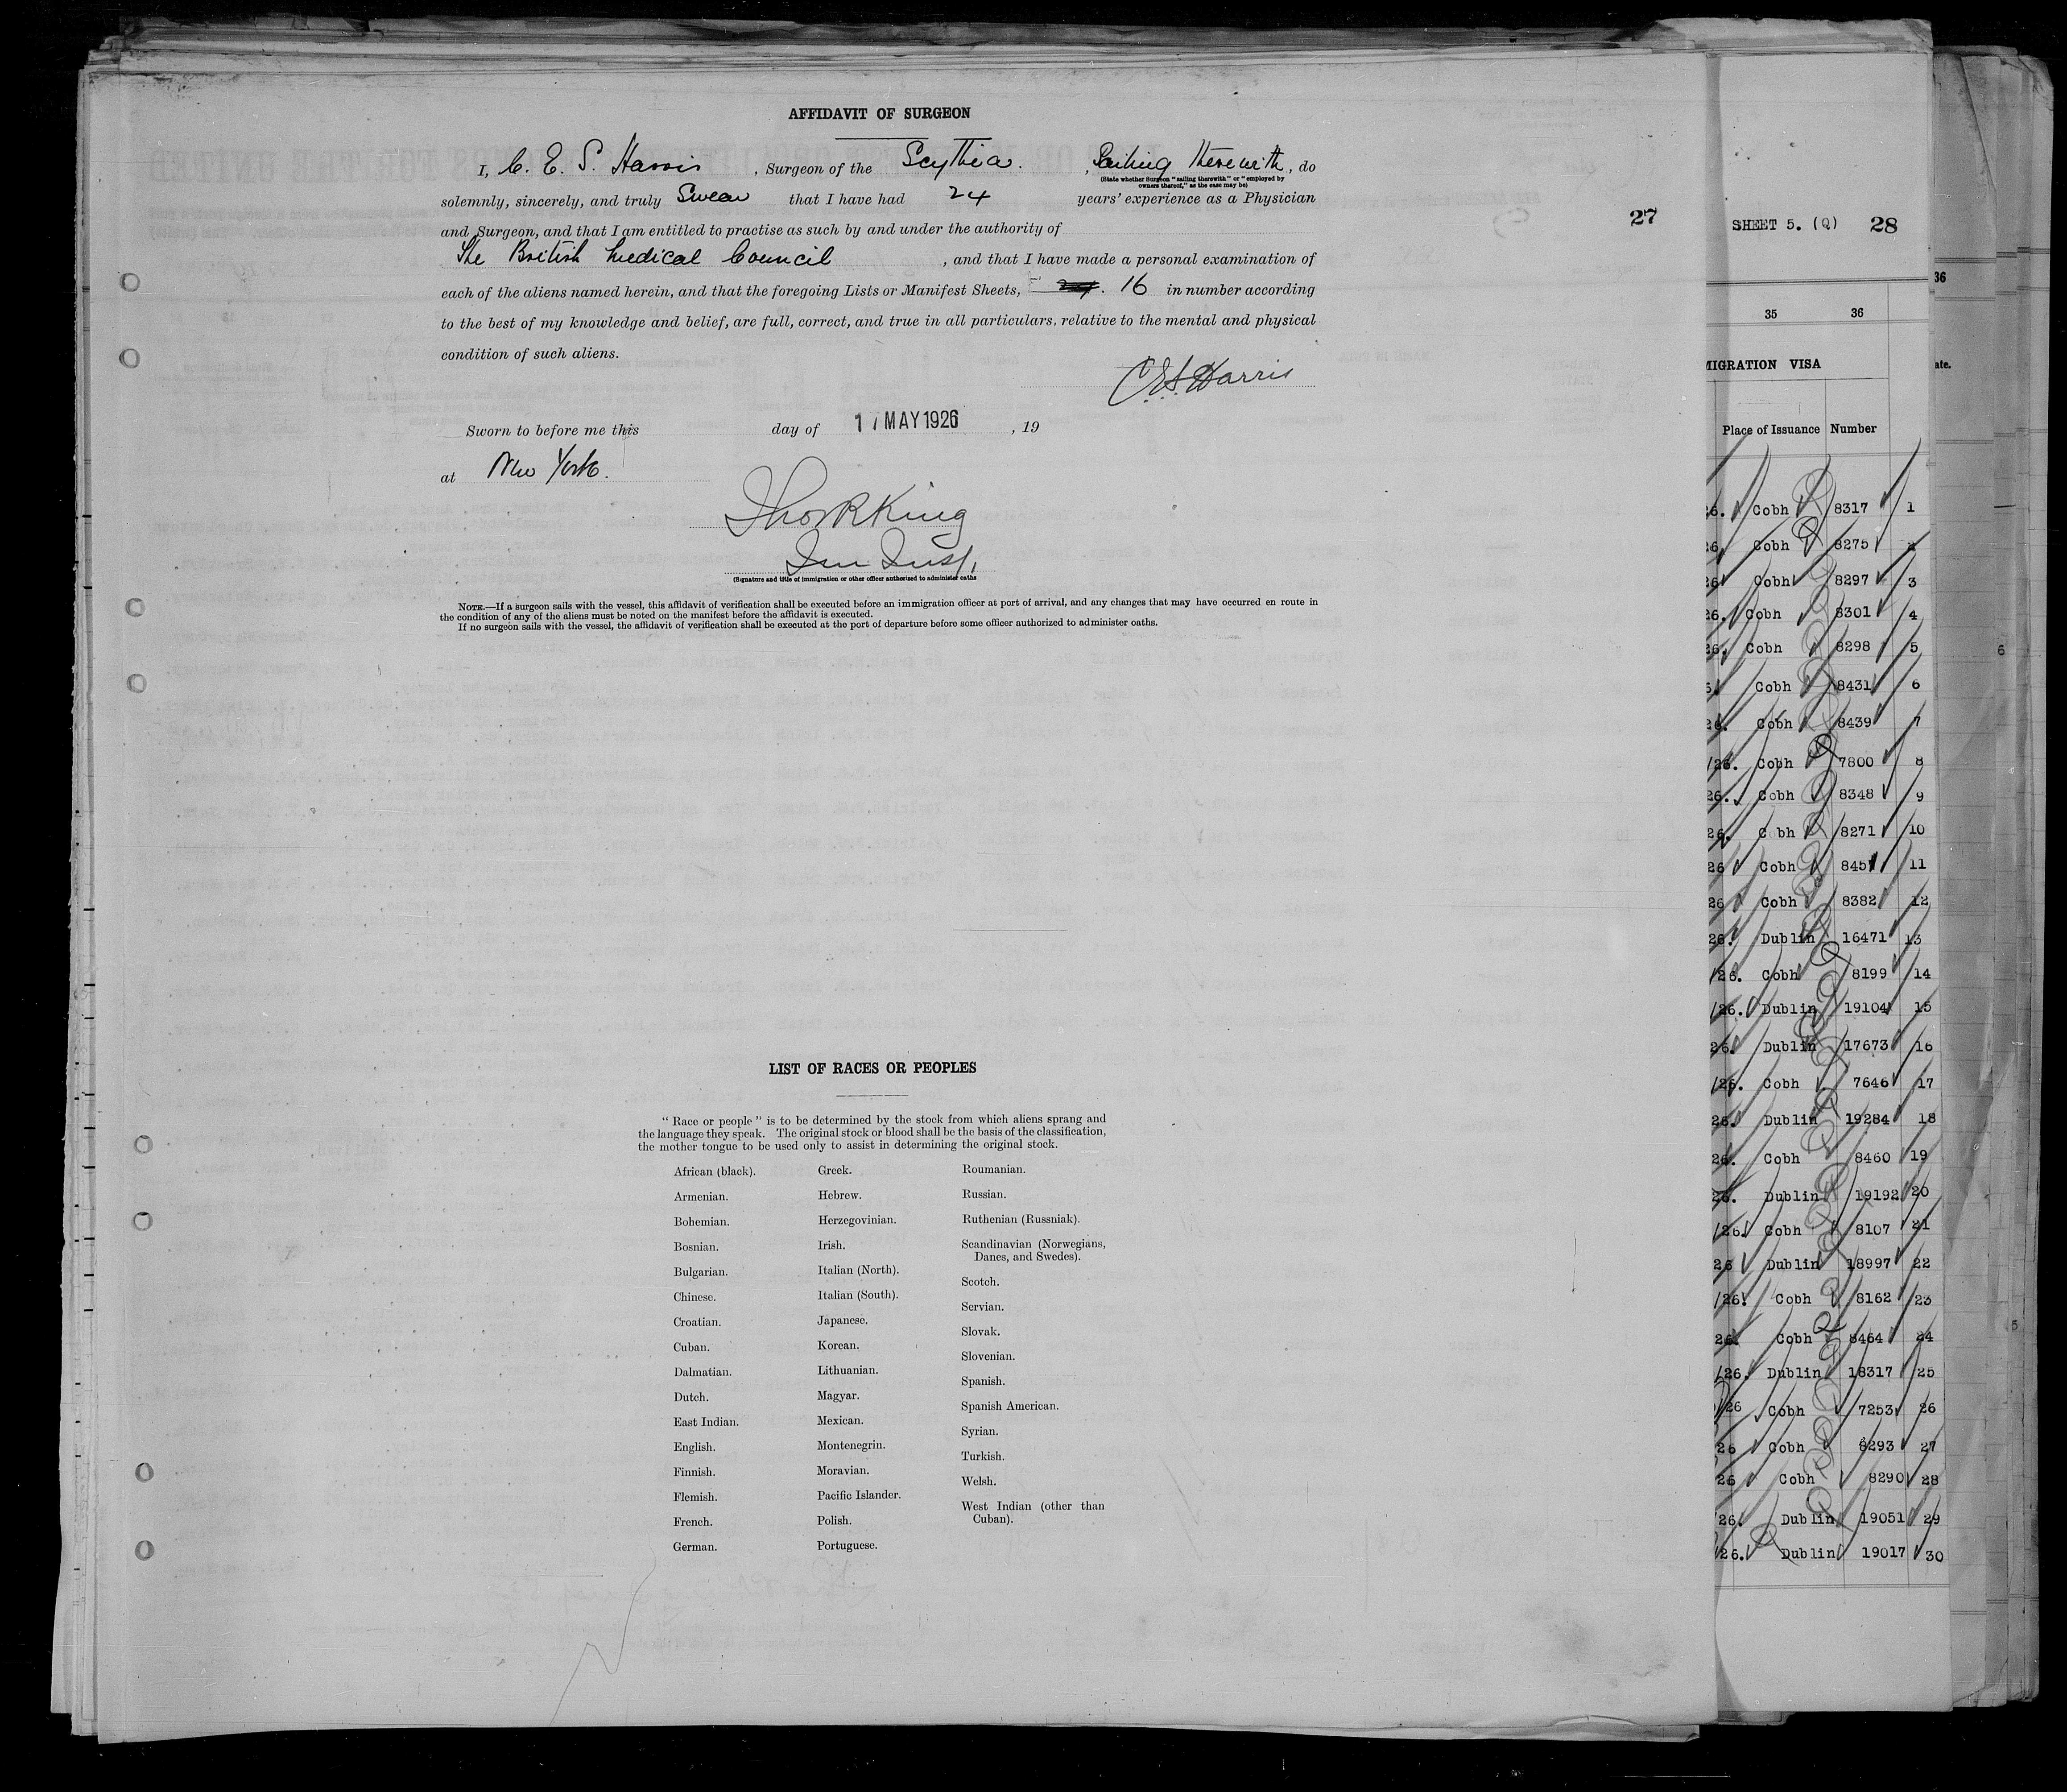 AFFIDAVIT OF SURGEON
I, C. E. S. Harris, Surgeon of the Scythia., Sailing therewith, do
(State whether Surgeon "sailing therewith" or "employed by
owners thereof," as the case may be)
solemnly, sincerely, and truly Swear that I have had 24 years' experience as a Physician
and Surgeon, and that I am entitled to practise as such by and under the authority of
The British Medical Council, and that I have made a personal examination of
each of the aliens named herein, and that the foregoing Lists or Manifest Sheets, 16 in number according
to the best of my knowledge and belief, are full, correct, and true in all particulars, relative to the mental and physical
condition of such aliens.
C E S Harris
Sworn to before me this day of 17 MAY 1926, 19
at New York.
Thos R King
Im Insp.
(Signature and title of immigration or other officer authorized to administer oaths
NOTE.—If a surgeon sails with the vessel, this affidavit of verification shall be executed before an immigration officer at port of arrival, and any changes that may have occurred en route in
the condition of any of the aliens must be noted on the manifest before the affidavit is executed.
If no surgeon sails with the vessel, the affidavit of verification shall be executed at the port of departure before some officer authorized to administer oaths.
LIST OF RACES OR PEOPLES
"Race or people" is to be determined by the stock from which aliens sprang and
the language they speak. The original stock or blood shall be the basis of the classification,
the mother tongue to be used only to assist in determining the original stock.
African (black).
Armenian.
Bohemian.
Bosnian.
Bulgarian.
Chinese.
Croatian.
Cuban.
Dalmatian.
Dutch.
East Indian.
English.
Finnish.
Flemish.
French.
German.
Greek.
Hebrew.
Herzegovinian.
Irish.
Italian (North).
Italian (South).
Japanese.
Korean.
Lithuanian.
Magyar.
Mexican.
Montenegrin.
Moravian.
Pacific Islander.
Polish.
Portuguese.
Roumanian.
Russian.
Ruthenian (Russniak).
Scandinavian (Norwegians,
Danes, and Swedes).
Scotch.
Servian.
Slovak.
Slovenian.
Spanish.
Spanish American.
Syrian.
Turkish.
Welsh.
West Indian (other than
Cuban).
27
SHEET 5. (Q) 28
35 36
MIGRATION VISA
Place of Issuance Number
26. Cobh 8317 1
26. Cobh 8275 2
26 Cobh 8297 3
26. Cobh 8301 4
26. Cobh 8298 5
Cobh 8431 6
26. Cobh 8439 7
/26. Cobh 7800 8
26. Cobh 8348 9
26. Cobh 8271 10
26 Cobh 11
26 Cobh 8382 12
26. Dublin 16471 13
/26. Cobh 8199 14
/26. Dublin 19104 15
26. Dublin 17673 16
/26. Cobh 7646 17
26. Dublin 19284 18
26. Cobh 8460 19
26. Dublin 19192 20
/26. Cobh 8107 21
26 Dublin 18997 22
/26. Cobh 8162 23
26. Cobh 8464 24
/26. Dublin 18317 25
/26 Cobh 7253 26
26 Cobh 8293 27
26 Cobh 8290 28
26. Dublin 19051 29
/26. Dublin 19017 30
36
ate.
6
5